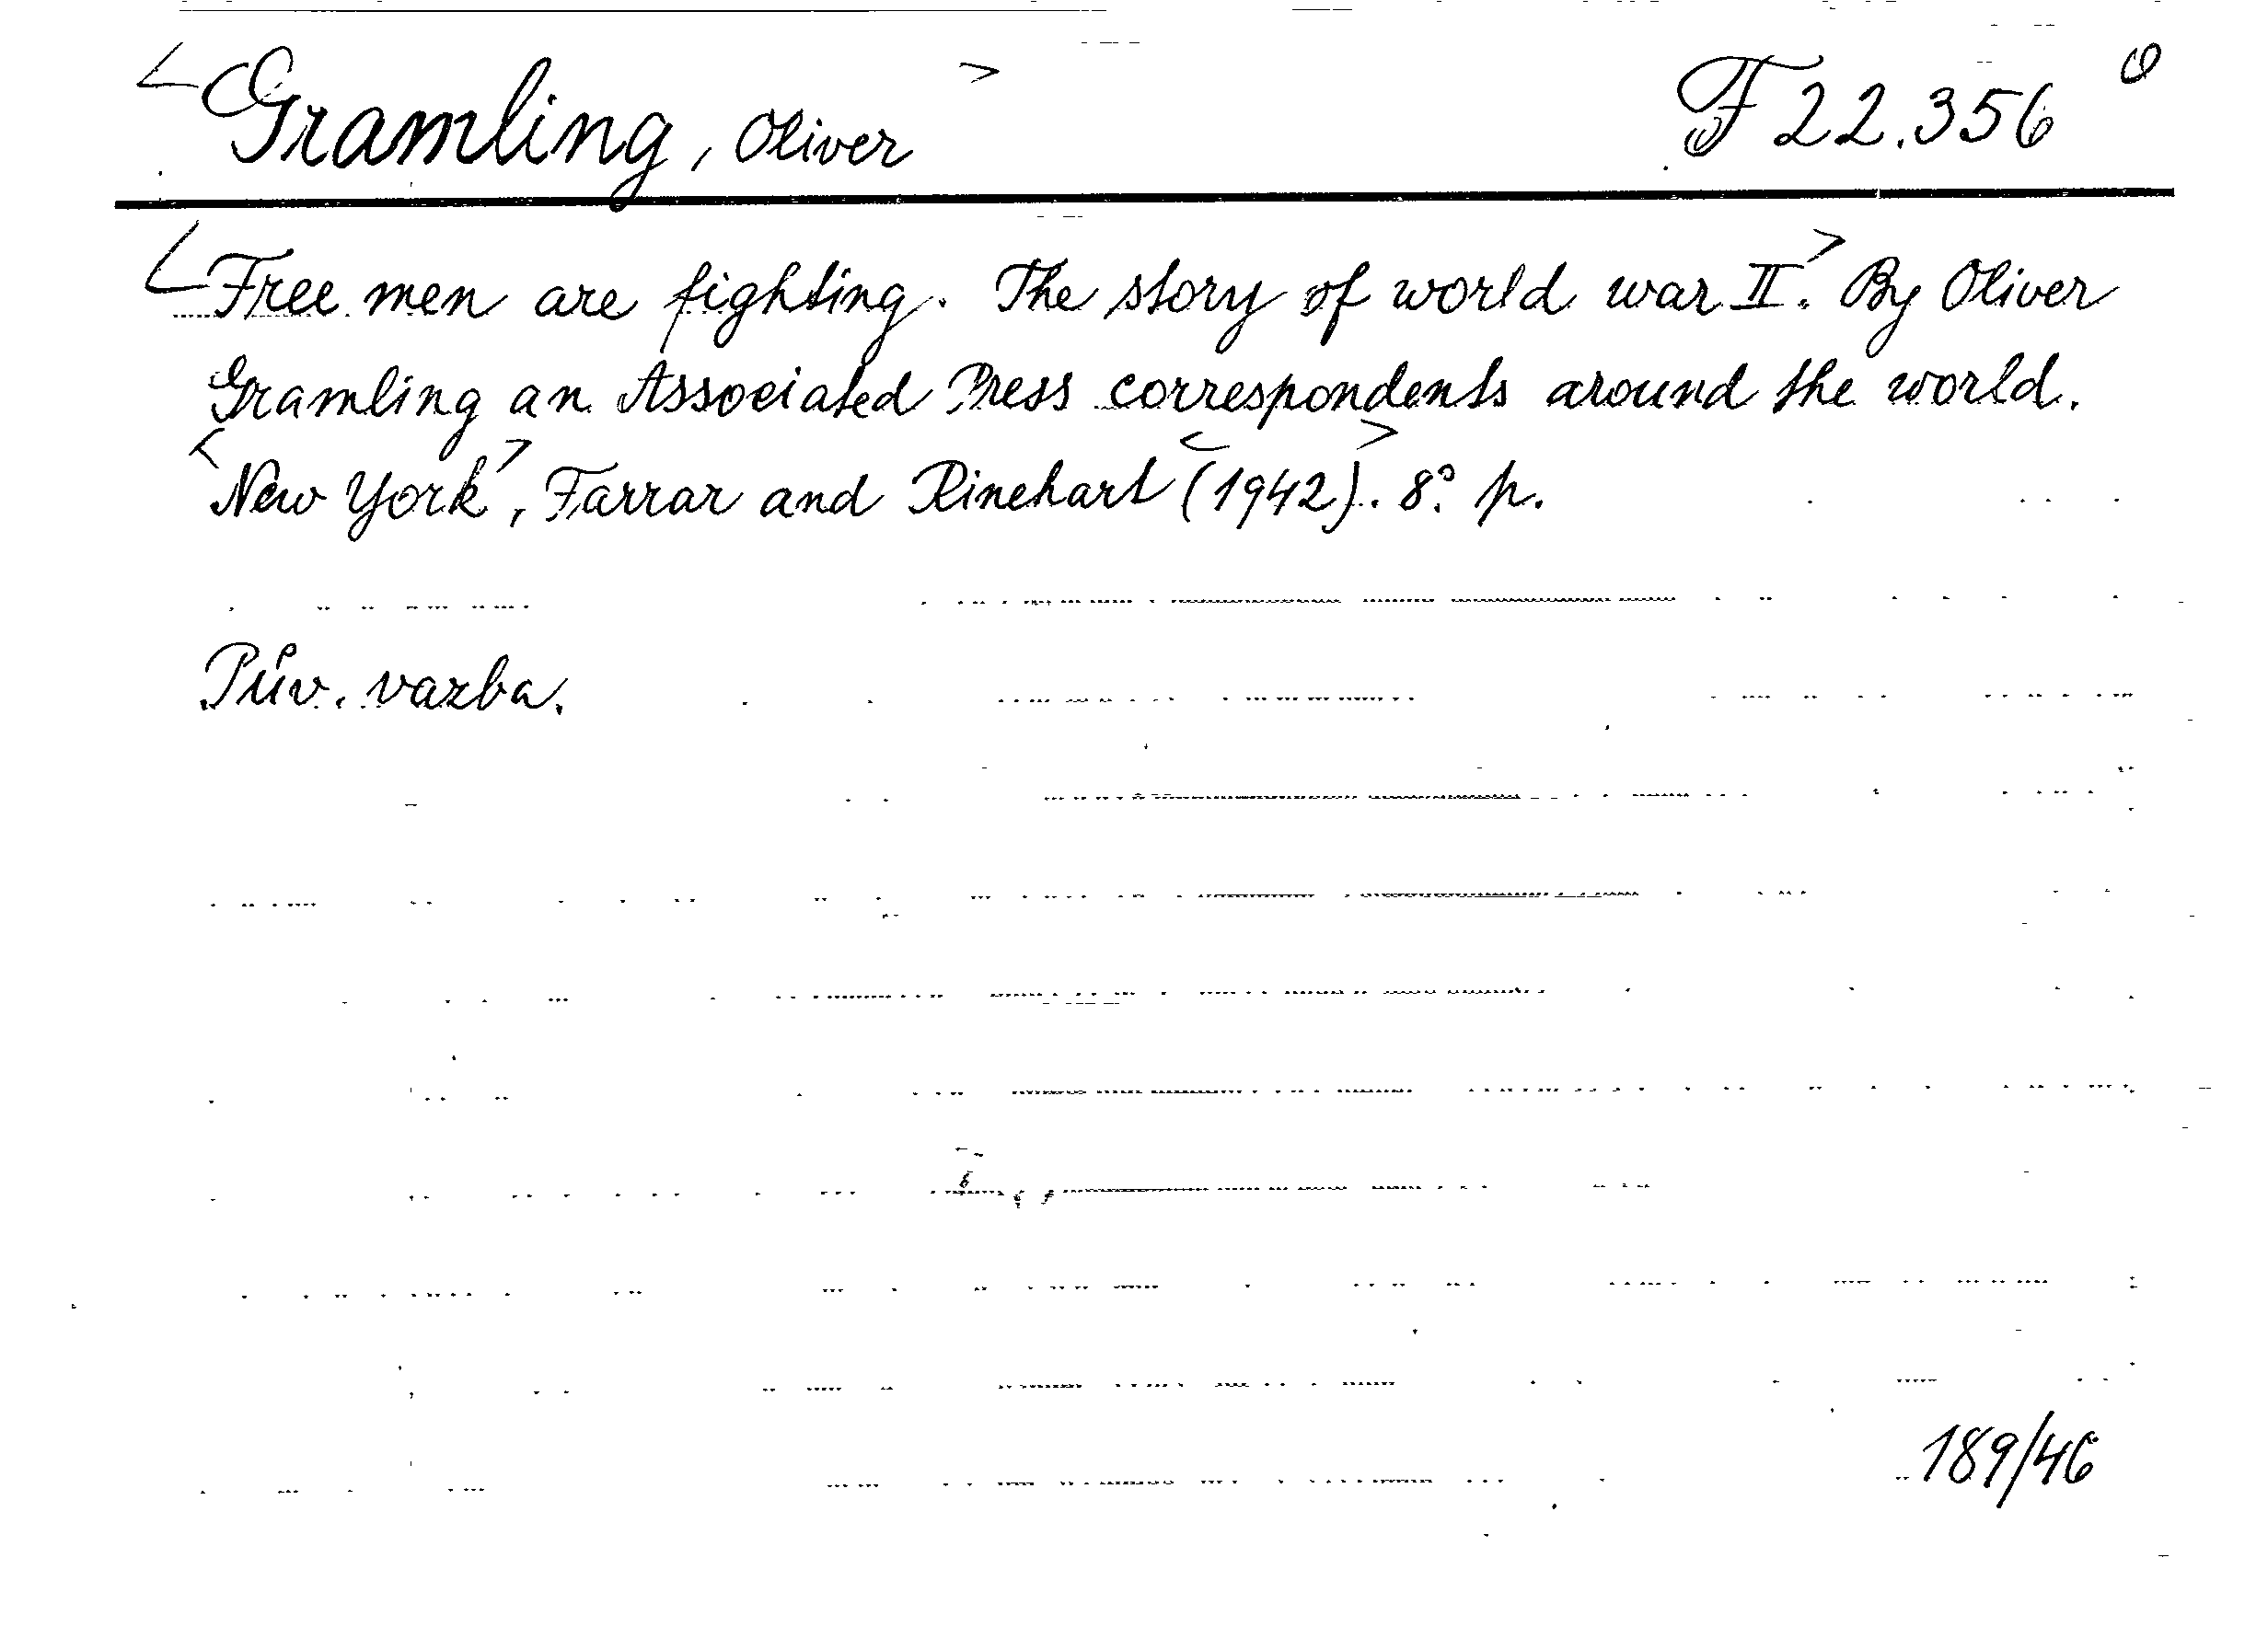 <Gramling, Oliver> F 22.356
<Free men are fighting. The story of world war II.> By Oliver
Gramling an Associated Press correspondents around the world.
<New York>, Farrar and Rinehart <(1942)>. 8°. p.
Pův. vazba.
189/46